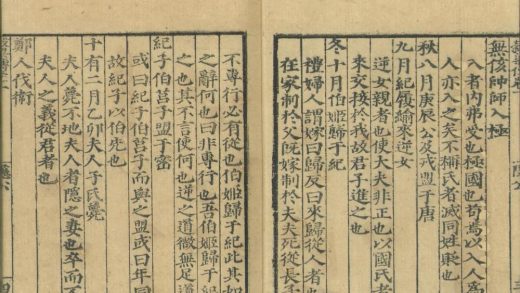 無侅帥師入極
入者內弗受也極國也苟焉以入人爲
人亦入之矣不稱氏者滅同姓貶也
秋八月庚辰公及戎盟于唐
九月紀履緰來逆女
逆女親者也使大夫非正也以國氏者
來交接於我故君子進之也
冬十月伯姬歸于紀
禮婦人謂嫁曰歸反曰來歸從人者也
在家制於父既嫁制於夫夫死從長子
不專行必有從也伯姬歸于紀此其如
之辭何也曰非專行也吾伯姬歸于紀
之也其不言使何也逆之道微無足道
紀子伯莒子盟于密
或曰紀子伯莒子而與之盟或曰年同
故紀子以伯先也
十有二月乙卯夫人子氏薨
夫人薨不地夫人者隱之妻也卒而不
夫人之義從君者也
鄭人伐衛